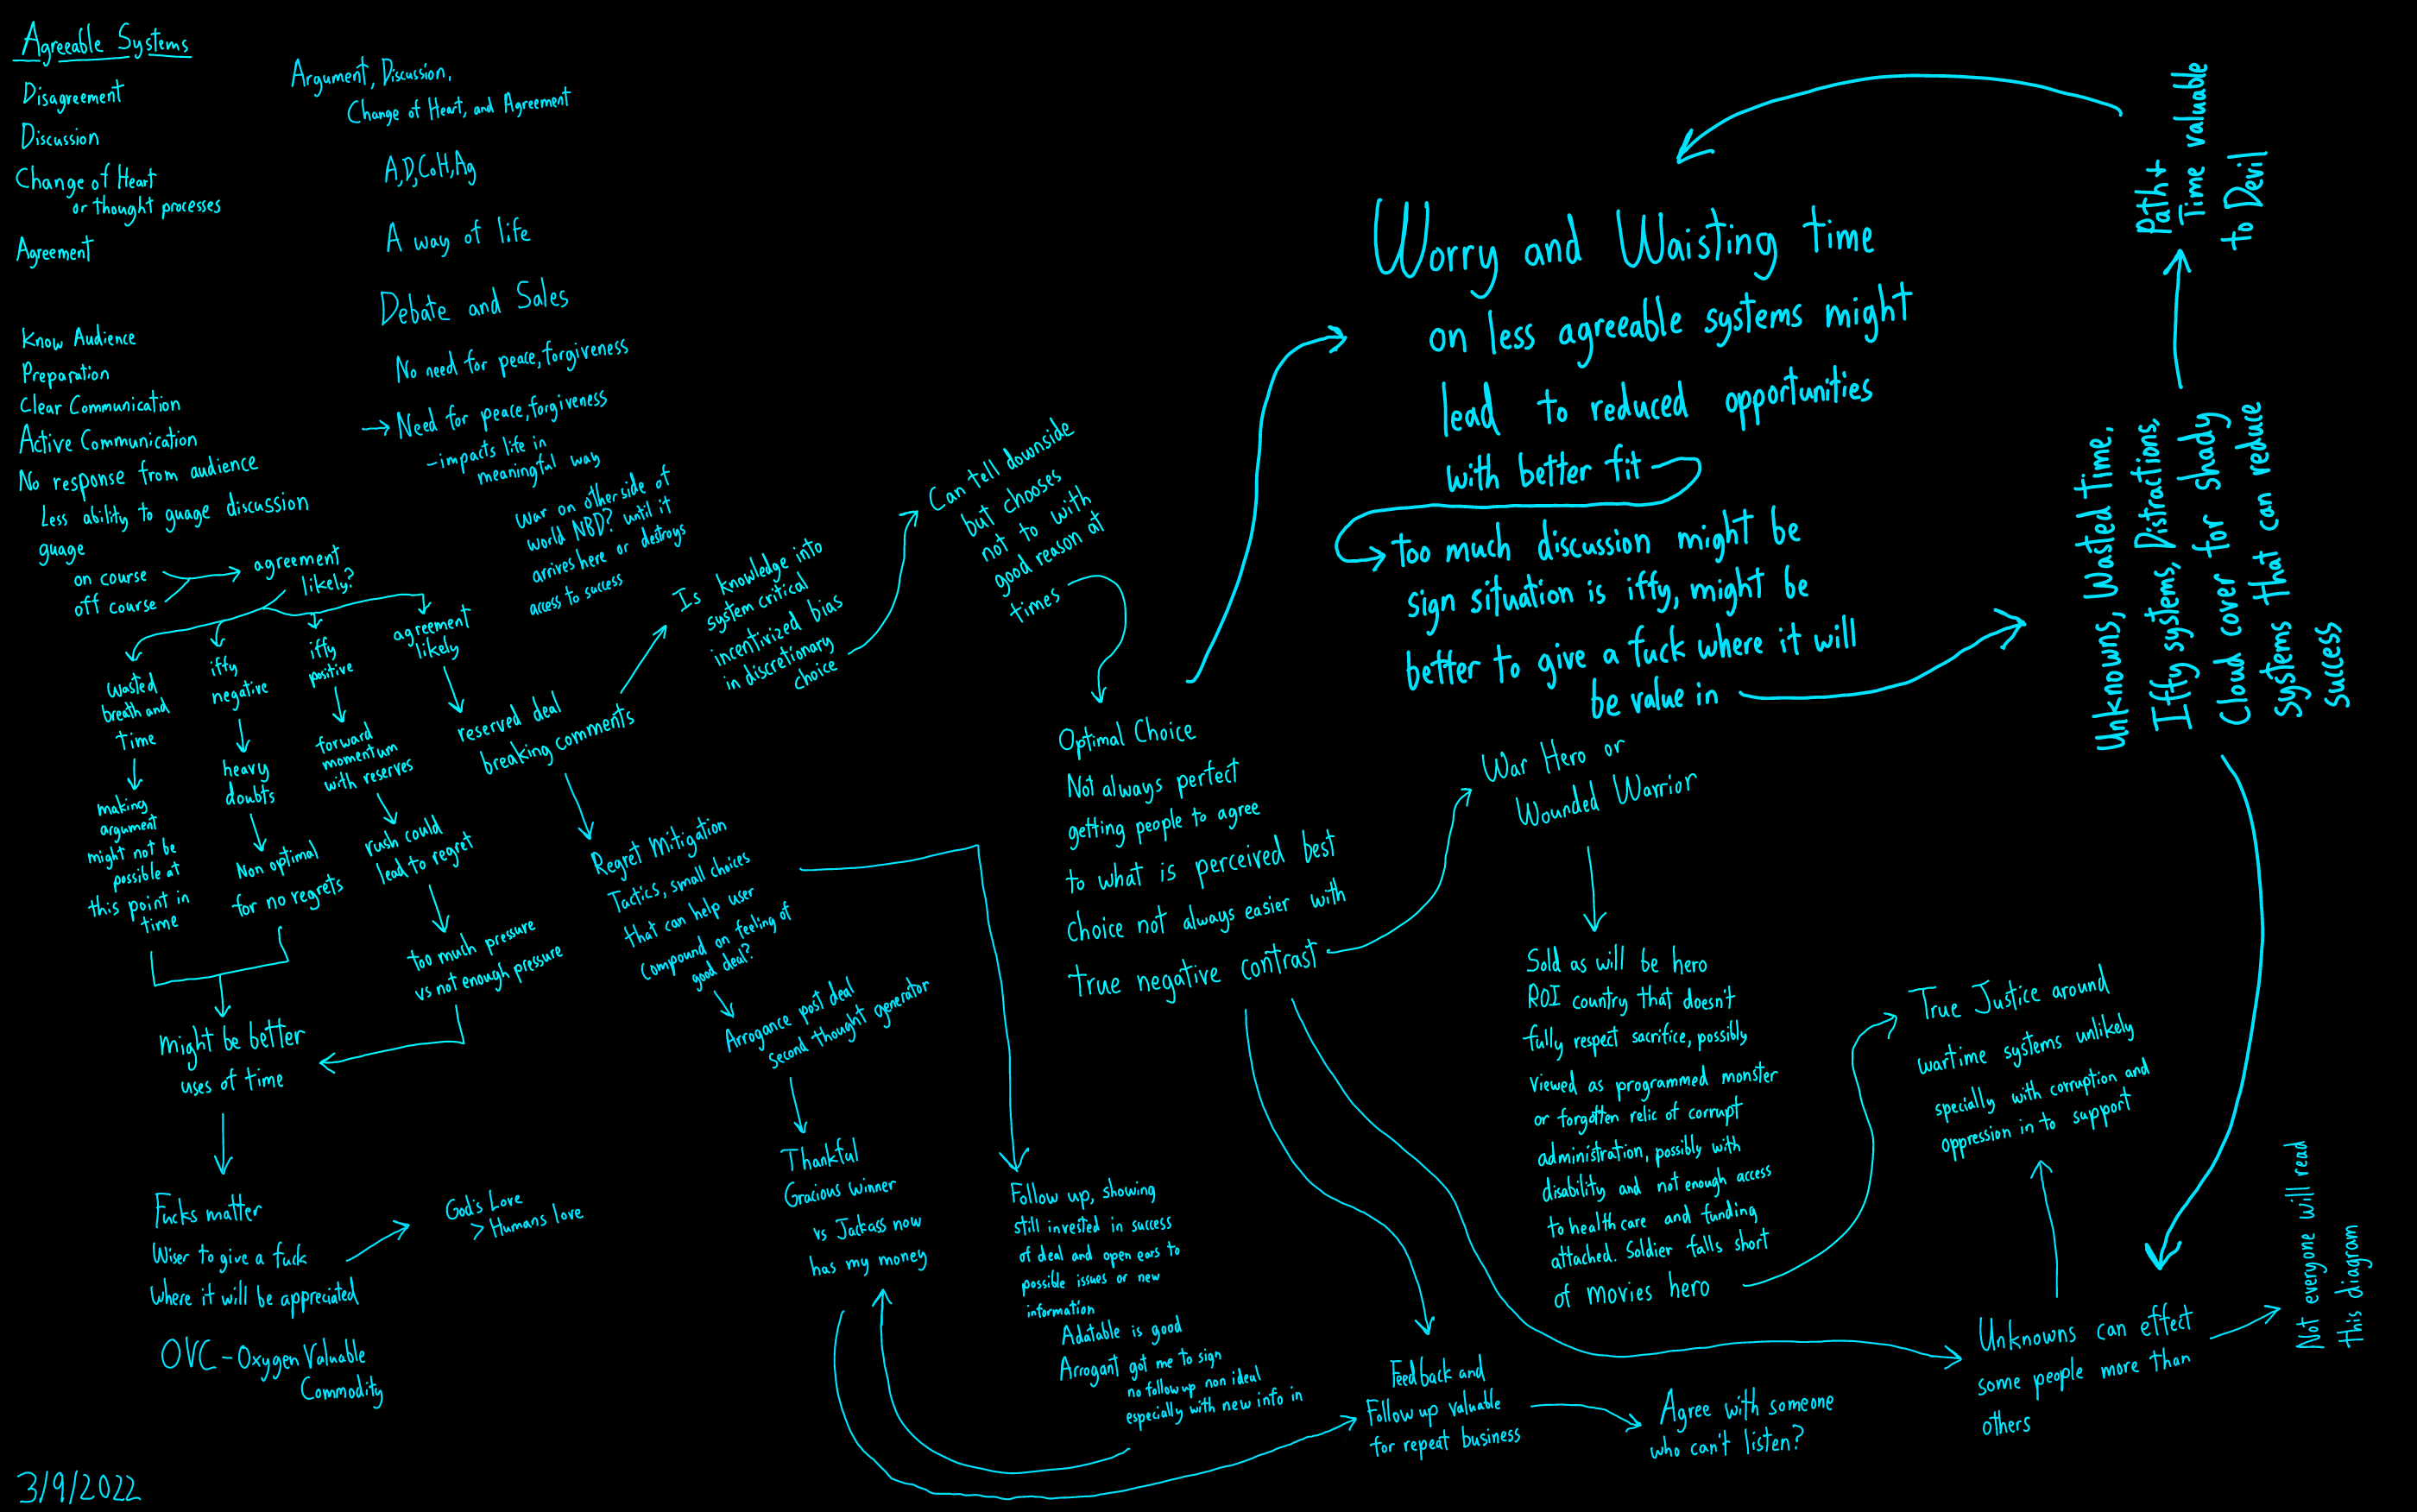 Agreeable Systems
Disagreement
Discussion
Change of Heart
or thought processes
Agreement
Know Audience
Preparation
Clear Communication
Active Communication
No response from audience
Less ability to guage discussion
guage
on course
off course
agreement
likely?
Wasted
breath and
time
making
argument
might not be
possible at
this point in
time
iffy
negative
heavy
doubts
Non optimal
for no regrets
iffy
positive
forward
momentum
with reserves
rush could
lead to regret
too much pressure
vs not enough pressure
agreement
likely
reserved deal
breaking comments
might be better
uses of time
Fucks matter
Wiser to give a fuck
where it will be appreciated
God's Love
> Humans love
OVC - Oxygen Valuable
Commodity
3/9/2022
Argument, Discussion,
Change of Heart, and Agreement
A,D,CoH,Ag
A way of life
Debate and Sales
No need for peace, forgiveness
→ Need for peace, forgiveness
- impacts life in
meaningful way
War on other side of
world NBD? until it
arrives here or destroys
access to success
Is knowledge into
system critical
incentivized bias
in discretionary
choice
Can tell downside
but chooses
not to with
good reason at
times
Regret Mitigation
Tactics, small choices
that can help user
compound on feeling of
good deal?
Arrogance post deal
second thought generator
Thankful
Gracious winner
vs Jackass now
has my money
Follow up, showing
still invested in success
of deal and open ears to
possible issues or new
information
Adatable is good
Arrogant got me to sign
no follow up non ideal
especially with new info in
Optimal Choice
Not always perfect
getting people to agree
to what is perceived best
choice not always easier with
true negative contrast
Feedback and
Follow up valuable
for repeat business
Agree with someone
who can't listen?
War Hero or
Wounded Warrior
Sold as will be hero
ROI country that doesn't
fully respect sacrifice, possibly
viewed as programmed monster
or forgotten relic of corrupt
administration, possibly with
disability and not enough access
to healthcare and funding
attached. Soldier falls short
of movies hero
True Justice around
wartime systems unlikely
specially with corruption and
oppression in to support
Unknowns can effect
some people more than
others
Not everyone will read
this diagram
Worry and Waisting time
on less agreeable systems might
lead to reduced opportunities
with better fit
too much discussion might be
sign situation is iffy, might be
better to give a fuck where it will
be value in
Unknowns, Wasted Time,
Iffy systems, Distractions,
Cloud cover for shady
systems that can reduce
success
Path +
Time valuable
to Devil